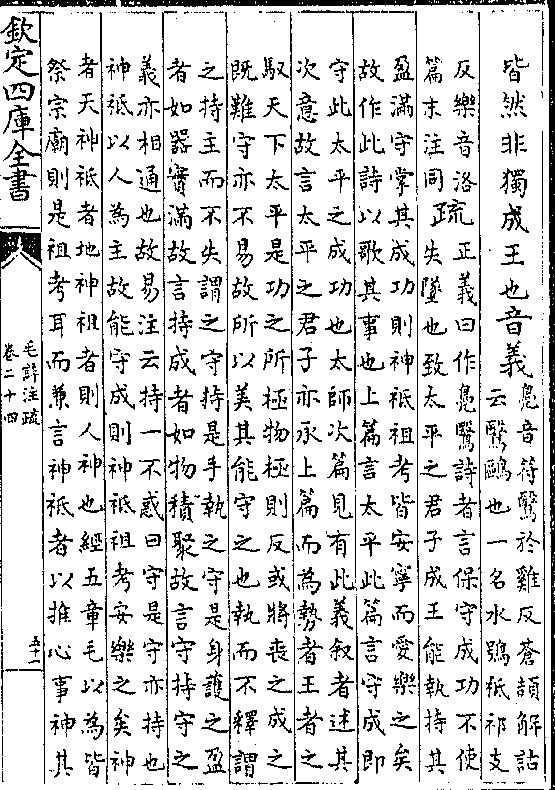 皆然非獨成王也音義
鳧音符鷖於雞反蒼頡解詁
云鷖鷗也一名水鴞祗祁支
反樂音洛
篇末注同
疏
正義曰作鳧鷖詩者言保守成功不使
失墜也致太平之君子成王能執持其
盈滿守掌其成功則神祗祖考皆安寧而愛樂之矣
故作此詩以歌其事也上篇言太平此篇言守成即
守此太平之成功也太師次篇見有此義叙者述其
次意故言太平之君子亦承上篇而為勢者王者之
馭天下太平是功之所極物極則反或將喪之成之
既難守亦不易故所以美其能守之也執而不釋謂
之持主而不失謂之守持是手執之守是身護之盈
者如器實滿故言持成者如物積聚故言守持守之
義亦相通也故易注云持一不惑曰守是守亦持也
神祗以人為主故能守成則神祗祖考安樂之矣神
者天神祗者地神祖者則人神也經五章毛以為皆
祭宗廟則是祖考耳而兼言神祗者以推心事神其
欽定四庫全書
毛詩注疏
卷二十四
五十一